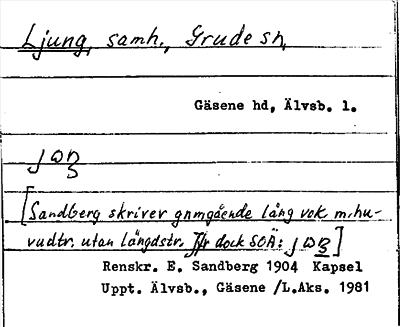 Ljung, samh., Grude sn,
Gäsene hd, Älvsb. l.
[Sandberg skriver gnmgående lång vok. m. hu-
vudtr. utan längdstr. Jfr dock SOÄ:
Renskr. E. Sandberg 1904 Kapsel
Uppt. Älvsb., Gäsene /L.Aks. 1981